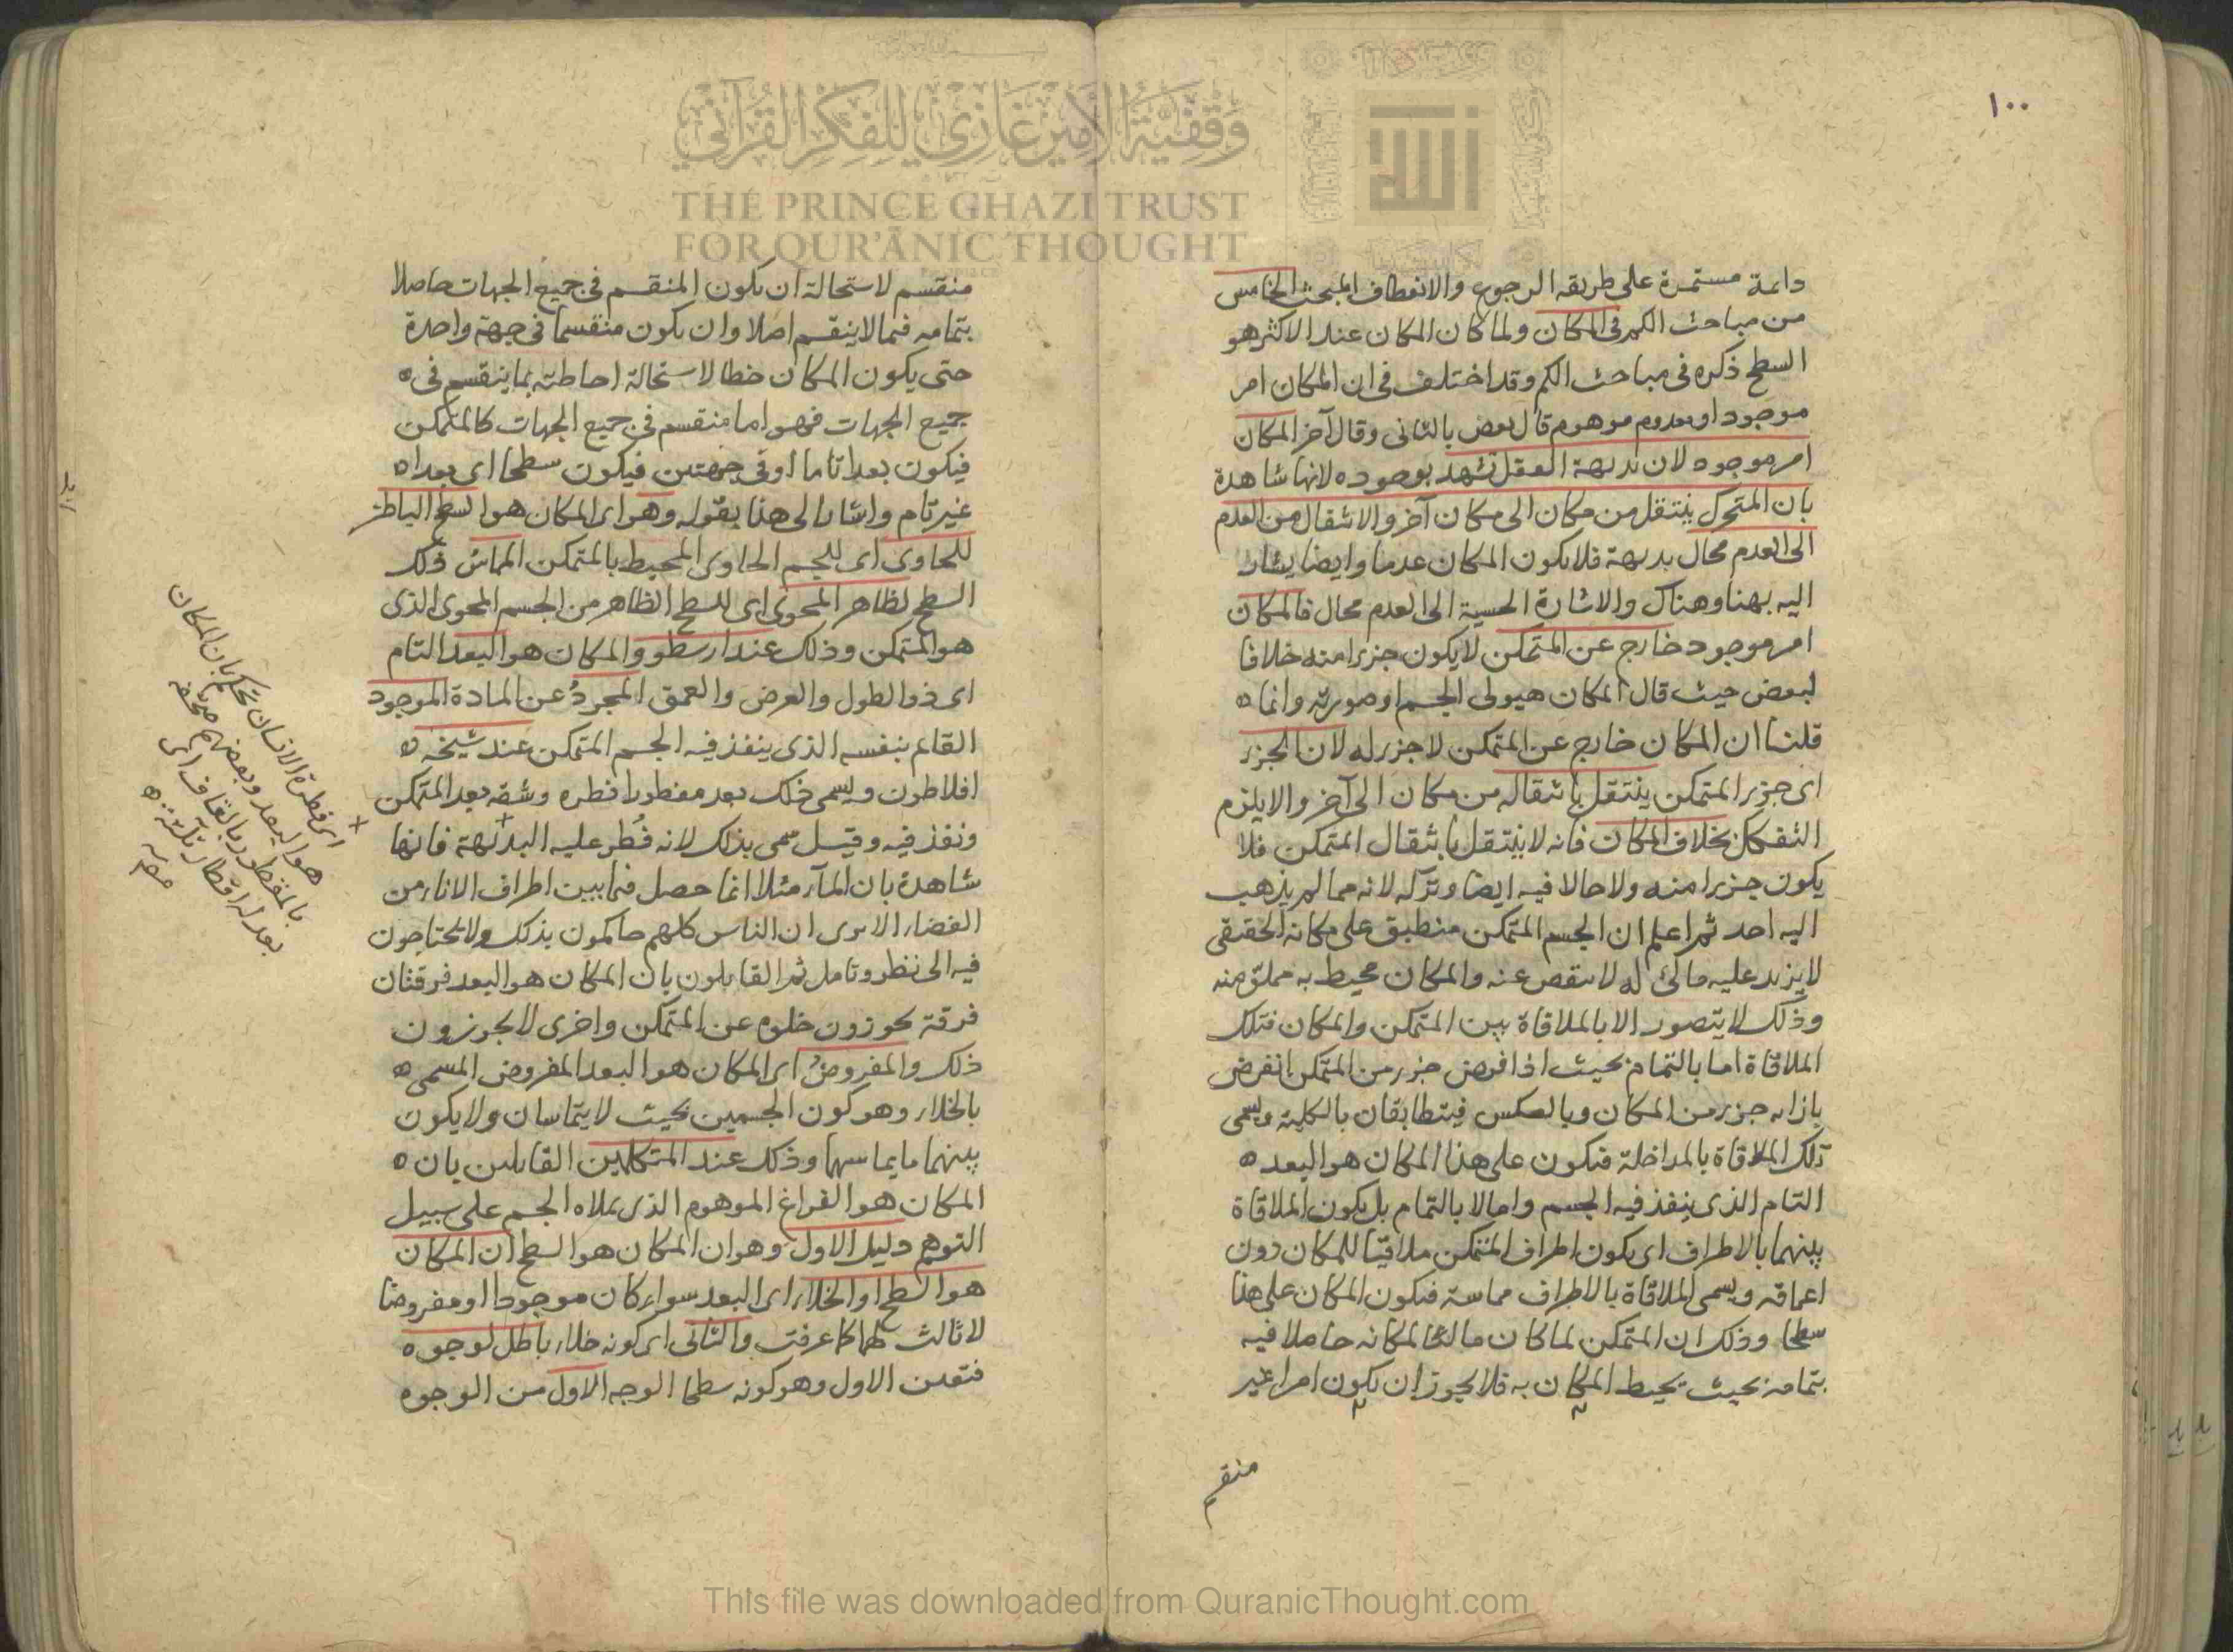 ١٠٠
دائمة مستمرة على طريقه الرجوع والانعطاف المبحث الخامس
من مباحث الكم في المكان ولما كان المكان عند الاكثر هو
السطح ذكره في مباحث الكم وقد اختلف في ان المكان امر
موجود او معدوم موهوم قال بعض بالثانى وقال آخر المكان
امر موجود لان بديهة العقل تشهد بوجوده لانها شاهدة
بان المتحرك ينتقل من مكان الى مكان آخر والانتقال من العدم
الى العدم محال بديهة فلا يكون المكان عدما وايضا يشار
اليه بهنا وهناك والاشارة الحسية الى العدم محال فالمكان
امر موجود خارج عن المتمكن لا يكون جزءا منه خلافا
لبعض حيث قال المكان هيولى الجسم او صورته وانما ه
قلنا ان المكان خارج عن المتمكن لا جزء له لان الجزء
اى جزء المتمكن ينتقل بانتقاله من مكان الى آخر والا يلزم
التفكك بخلاف المكان فانه لا ينتقل بانتقال المتمكن فلا
يكون جزءا منه ولا حالا فيه ايضا وتركه لانه مما لم يذهب
اليه احد ثم اعلم ان الجسم المتمكن منطبق على مكانه الحقيقى
لا يزيد عليه مالئ له لا ينقص عنه والمكان محيط به مملو منه
وذلك لا يتصور الا بالملاقاة بين المتمكن والمكان فتلك
الملاقاة اما بالتمام بحيث اذا فرض جزء من المتمكن انفرض
بازائه جزء من المكان وبالعكس فيتطابقان بالكلية ويسمى
تلك الملاقاة بالمداخلة فيكون على هذا المكان هو البعد ه
التام الذى ينفذ فيه الجسم واما لا بالتمام بل يكون الملاقاة
بينهما بالاطراف اى يكون اطراف المتمكن ملاقيا للمكان دون
اعماقه ويسمى الملاقاة بالاطراف مماسة فيكون المكان على هذا
سطحا وذلك ان المتمكن لما كان مالئا لمكانه حاصلا فيه
بتمامه بحيث يحيط المكان به فلا يجوز ان يكون امرا غير
منقسم
منقسم لاستحالة ان يكون المنقسم في جميع الجهات حاصلا
بتمامه فيما لا ينقسم اصلا وان يكون منقسما في جهة واحدة
حتى يكون المكان خطا لاستحالة احاطته بما ينقسم في ه
جميع الجهات فهو اما منقسم في جميع الجهات كالمتمكن
فيكون بعدا تاما او في جهتين فيكون سطحا اى بعدا ه
غير تام واشار الى هذا بقوله وهو اى المكان هو السطح الباطن
للحاوى اى للجسم الحاوى المحيط بالمتمكن المماس ذلك
السطح لظاهر المحوى اى للسطح الظاهر من الجسم المحوى الذى
هو المتمكن وذلك عند ارسطو والمكان هو البعد التام
اى ذو الطول والعرض والعمق المجرد عن المادة الموجود
القائم بنفسه الذى ينفذ فيه الجسم المتمكن عند شيخه ه
افلاطون ويسمى ذلك بعد مفطورا فطره وشقه بعد المتمكن
ونفذ فيه وقيل سمى بذلك لانه فُطر عليه البديهة فانها
شاهدة بان المآء مثلا انما حصل فيما بين اطراف الاناء من
الفضاء الا يرى ان الناس كلهم حاكمون بذلك ولا يحتاجون
فيه الى نظر وتامل ثم القائلون بان المكان هو البعد فرقتان
فرقة يجوزون خلوه عن المتمكن واخرى لا يجوزون
ذلك والمفروض اى المكان هو البعد المفروض المسمى ه
بالخلاء وهو كون الجسمين بحيث لا يتماسان ولا يكون
بينهما ما يماسهما وذلك عند المتكلمين القائلين بان ه
المكان هو الفراغ الموهوم الذى يملاه الجسم على سبيل
التوهم دليل الاول وهو ان المكان هو السطح ان المكان
هو السطح او الخلاء اى البعد سواء كان موجودا او مفروضا
لا ثالث لهما كما عرفت والثانى اى كونه خلاء باطل لوجوه
فتعين الاول وهو كونه سطحا الوجه الاول من الوجوه
اى فطرة الانسان تحكم بان المكان
هو البعد وبعضهم صحفه
بالمقطور بالقاف اى
بعد له اقطار ثلثة ه